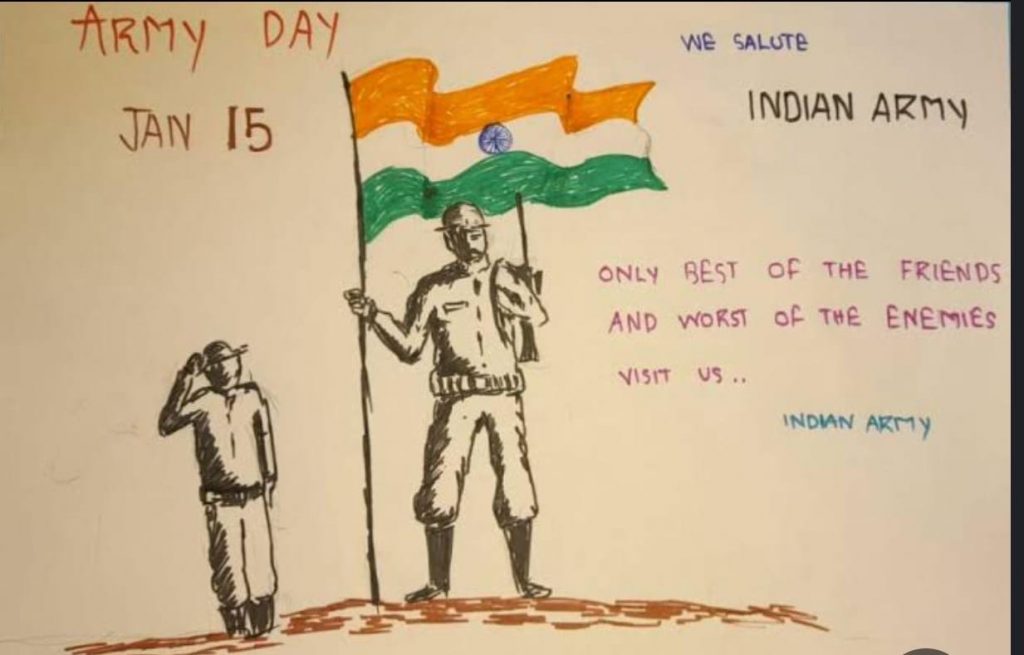 ARMY DAY
JAN 15
WE SALUTE
INDIAN ARMY
ONLY BEST OF THE FRIENDS
AND WORST OF THE ENEMIES
VISIT US..
INDIAN ARMY